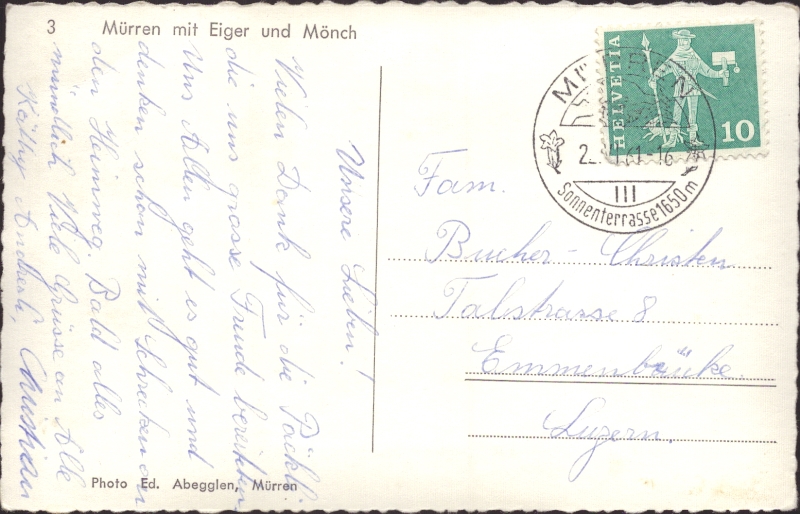 3 Mürren mit Eiger und Mönch
Unsere Lieben!
Vielen Dank für die Päckli
die uns grosse Freude bereiteten.
Uns Allen geht es gut und
denken schon mit Schrecken an
den Heimweg. Bald alles
mündlich Viele Grüsse an Alle
Käthy
Photo Ed. Abegglen, Mürren
HELVETIA
10
MÜRREN
16
III
Sonnenterrasse 1650 m
Fam.
Bucher-Christen
Talstrasse 8
Emmenbrücke.
Luzern.